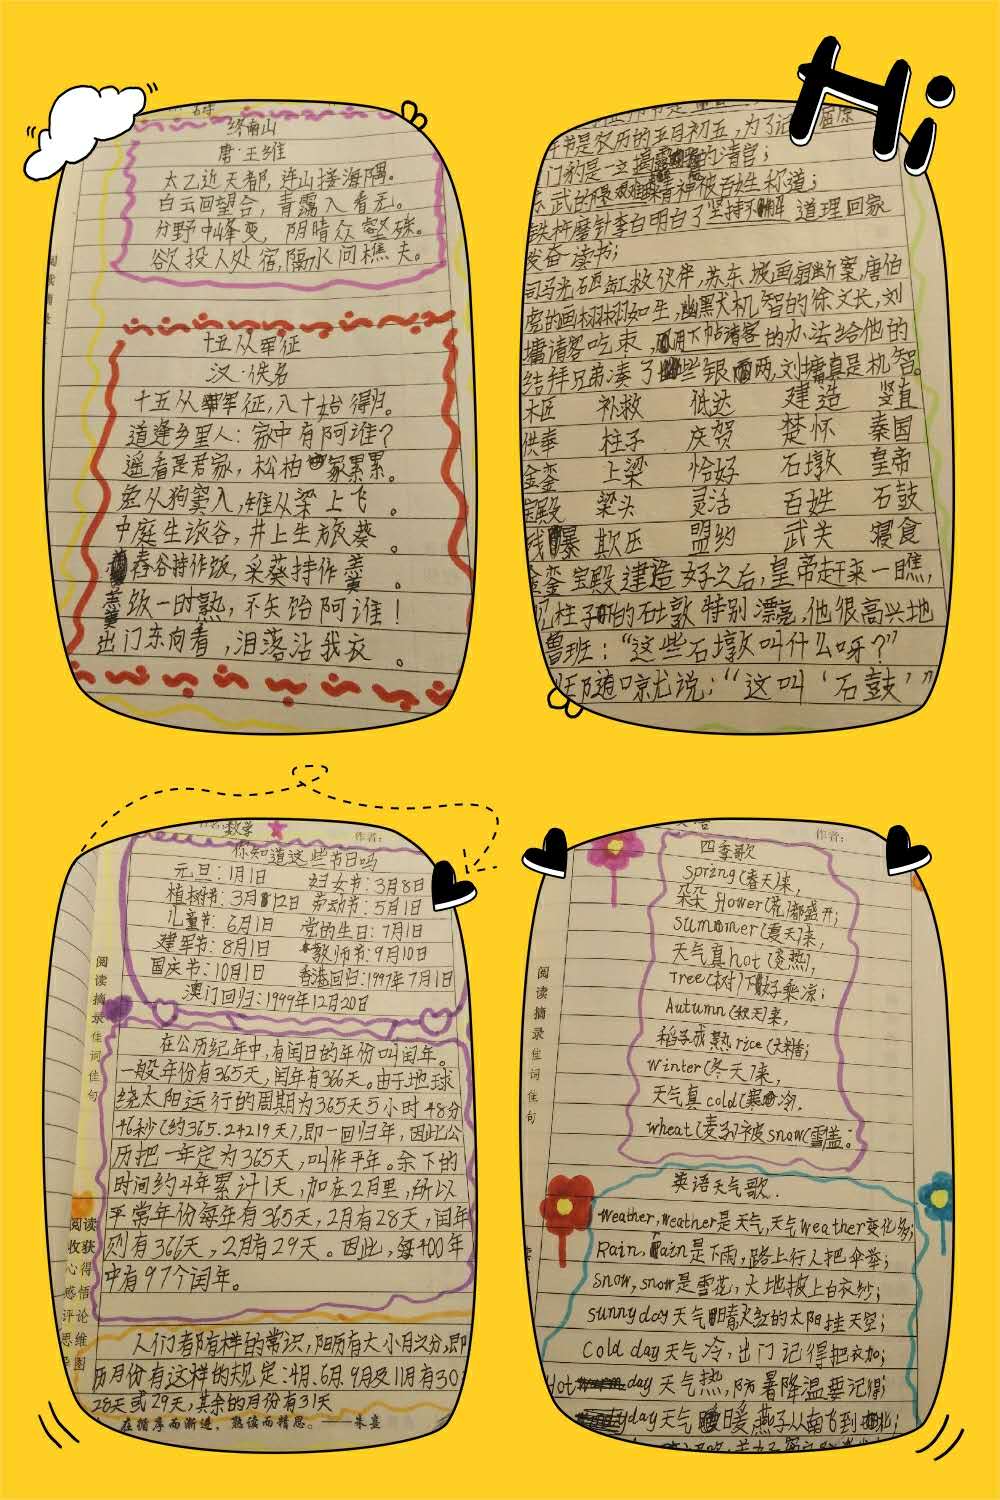 Hi
终南山
唐·王维
太乙近天都,连山接海隅。
白云回望合,青霭入看无。
分野中峰变,阴晴众壑殊。
欲投人处宿,隔水问樵夫。
十五从军征
汉·佚名
十五从军征,八十始得归。
道逢乡里人:家中有阿谁?
遥看是君家,松柏冢累累。
兔从狗窦入,雉从梁上飞。
中庭生旅谷,井上生旅葵。
舂谷持作饭,采葵持作羹。
羹饭一时熟,不知饴阿谁!
出门东向看,泪落沾我衣。
午节是农历的五月初五,为了
门豹是一位的清官;
武的精神被百姓称道;
铁杵磨针李白明白了坚持不懈 道理回家
发奋读书;
司马光砸缸救伙伴,苏东坡画扇断案,唐伯
虎的画栩栩如生,幽默机智的徐文长,刘
墉请客吃枣,用下帖请客的办法给他的
结拜兄弟凑了些银两,刘墉真是机智。
木匠 补救 低达 建造 竖直
供奉 柱子 庆贺 楚怀 秦国
金銮 上梁 恰好 石墩 皇帝
宝殿 梁头 灵活 百姓 石鼓
残暴 欺压 盟约 武关 寝食
金銮宝殿建造好之后,皇帝赶来一瞧,
见柱子的石墩特别漂亮,他很高兴地
鲁班:“这些石墩叫什么呀?”
班随口说:“这叫‘石鼓’”
数学
作者:
你知道这些节日吗
元旦:1月1日 妇女节:3月8日
植树节:3月12日 劳动节:5月1日
儿童节:6月1日 党的生日:7月1日
建军节:8月1日 教师节:9月10日
国庆节:10月1日 香港回归:1997年7月1日
澳门回归:1999年12月20日
在公历纪年中,有闰日的年份叫闰年。
一般年份有365天,闰年有366天。由于地球
绕太阳运行的周期为365天5小时48分
46秒(约365.24219天),即一回归年,因此公
历把一年定为365天,叫作平年。余下的
时间约4年累计1天,加在2月里,所以
平常年份每年有365天,2月有28天,闰年
则有366天,2月有29天。因此,每400年
中有97个闰年。
人们者都有样的常识,阳历有大小月之分,即
历月份有这样的规定:4月、6月、9月及11月有30
28天或29天,其余的月份有31天
在循序而渐进,熟读而精思。——朱熹
阅读摘录佳词佳句
阅读
收获
心得
感悟
评论
思维
图
作者:
四季歌
spring(春天)来,
朵朵flower(花)都盛开;
summer(夏天)来,
天气真hot(炎热),
Tree(树)下好乘凉;
Autumn(秋天)来,
稻子成熟rice(大米)香;
Winter(冬天)来,
天气真cold(寒冷),
wheat(麦子)被snow(雪)盖。
阅读摘录佳词佳句
英语天气歌.
weather,weather是天气,天气weather变化多;
Rain,rain是下雨,路上行人把伞举;
snow,snow是雪花,大地披上白衣纱;
sunnyday天气晴,火红的太阳挂天空;
Cold day天气冷,出门记得把衣加;
Hot day天气热,防暑降温要记得;
day天气暖,燕子从南飞到北;